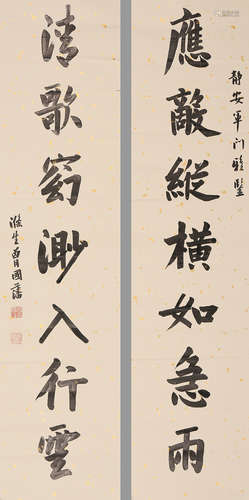 靜安軍門雅鑒
應敵縱橫如急雨
清歌窈渺入行雲
滌生曾國藩